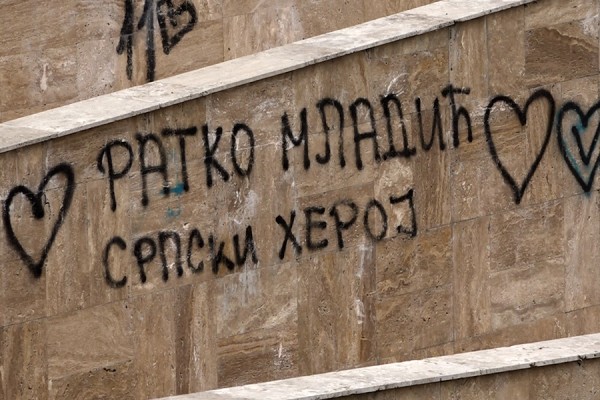 РАТКО МЛАДИЋ
СРПСКИ ХЕРОЈ